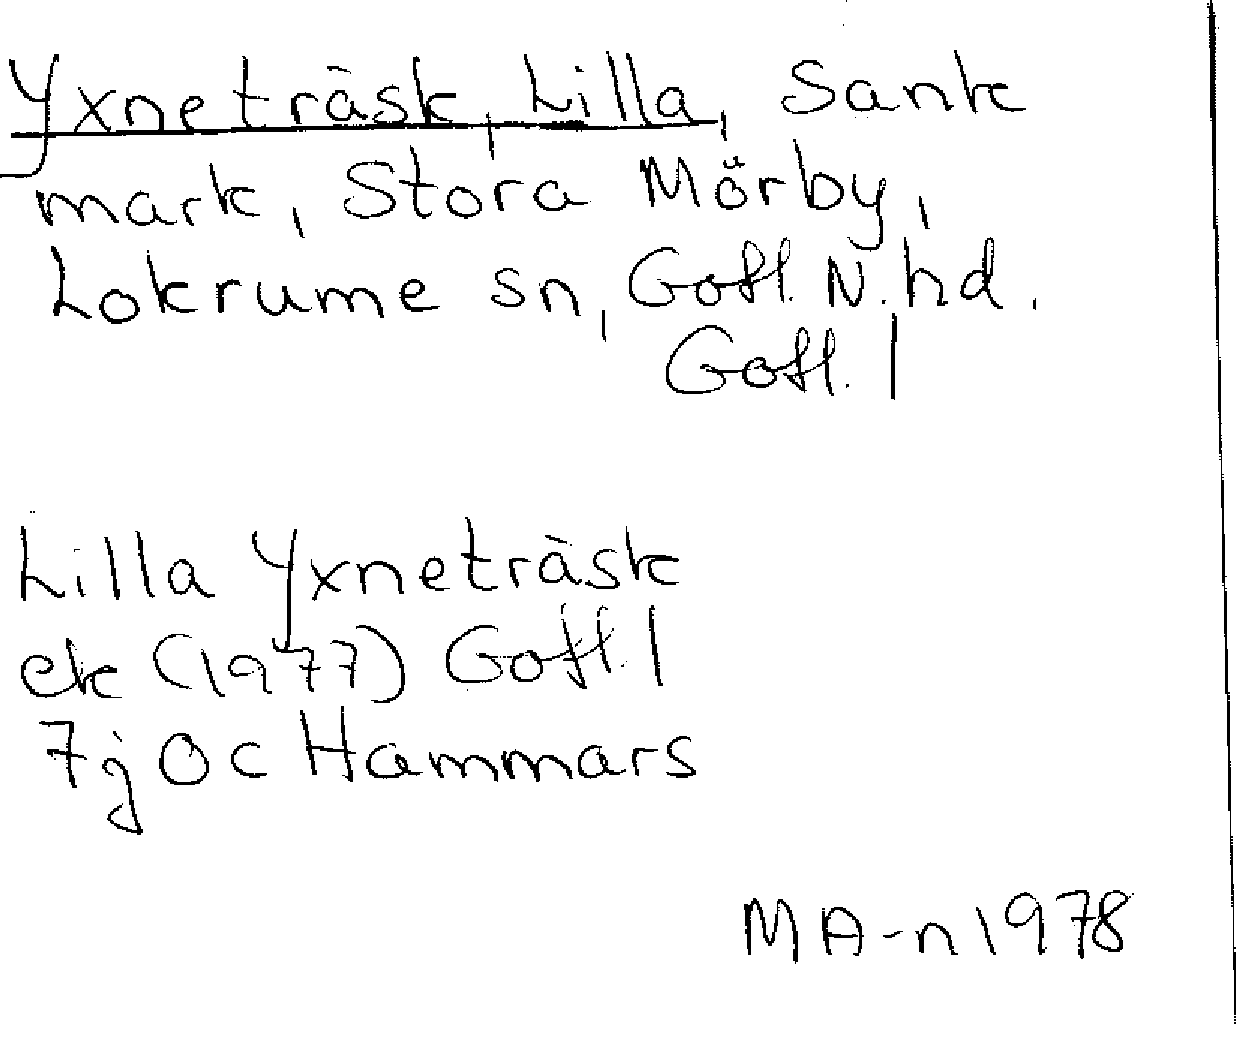 Yxneträsk, Lilla, Sank
mark, Stora Mörby,
Lokrume sn, Gotl. N. hd.
Gotl. l
Lilla Yxneträsk
ek (1977) Gotl. l
7j 0c Hammars
MA-n 1978